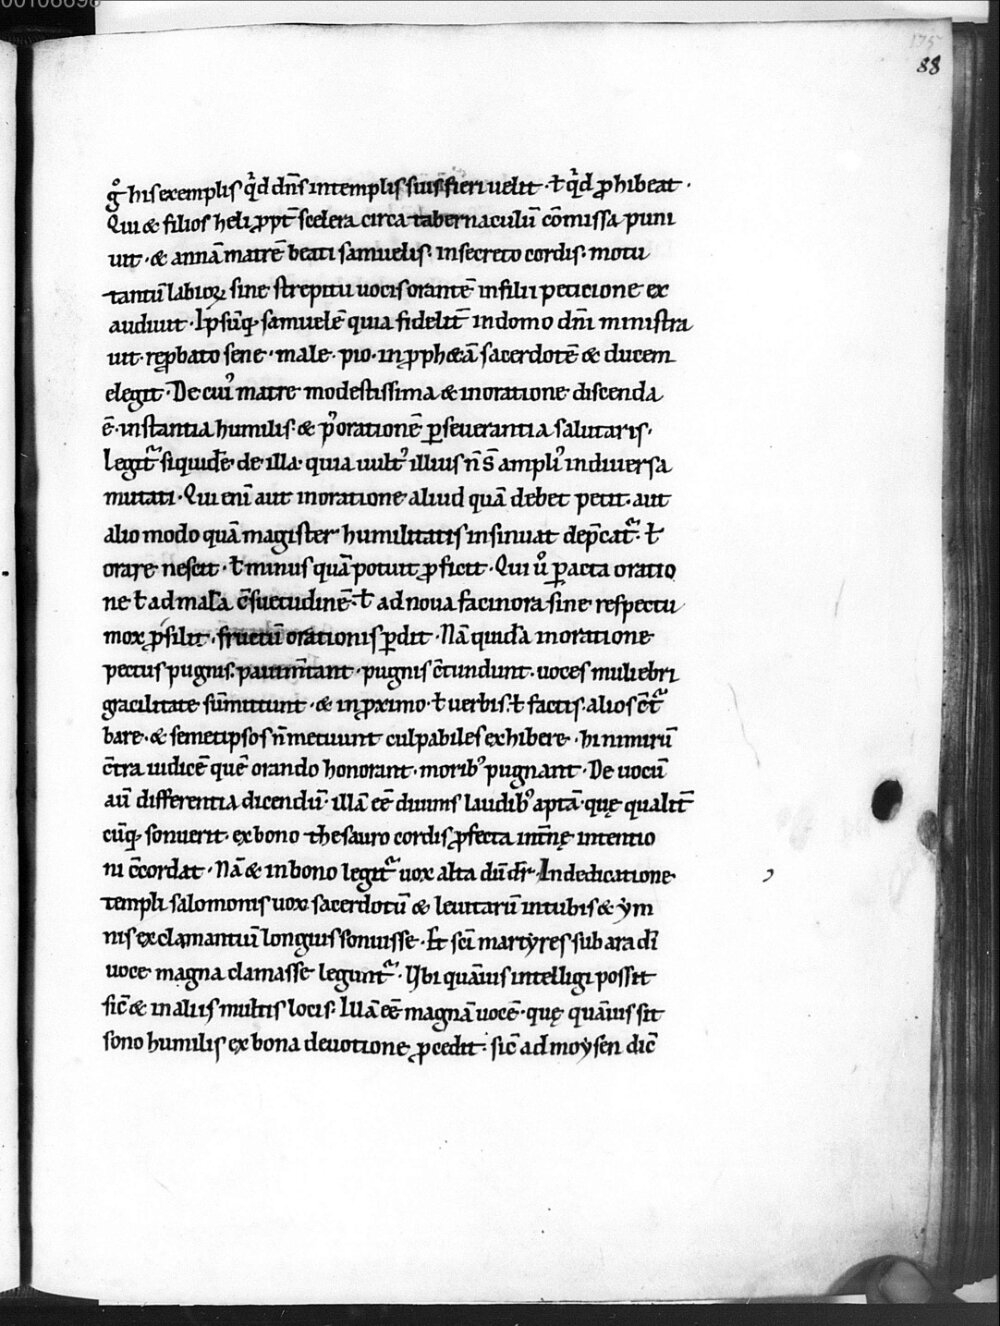 00106698
175
88
g̊ hisexemplis q̊d dn̄s intemplis suis fieri uelit · ƚ q̊d ꝓhibeat ·
Qui & filios heli ꝓpt̄ scelera circa tabernaculū cōmissa puni
uit · & annā matrē beati samuelis · insecreto cordis · motu
tantū labioꝝ sine strepitu uocis orantē infilii peticione ex
audiuit · Ipsūq; samuelē quia fidelit̄ indomo dn̄i ministra
uit · reꝓbato sene · male · pio · inꝓph&ā sacerdotē & ducem
elegit · De cuiꝰ matre modestissima & inoratione discenda
ē · instantia humilis · & pꝰ orationē ꝑseuerantia salutaris ·
Legit᷑ siquidē de illa · quia uultꝰ illius n̄ s̄ ampliꝰ indiuersa
mutati · Qui eni aut inoratione aliud quā debet petit · aut
alio modo quā magister humilitatis insinuat dep̄cat᷑ · ƚ
orare nescit · ƚ minus quā potuit ꝓficit · Qui ů ꝑacta oratio
ne ƚ ad malā c̄suetudinē · ƚ ad noua facinora sine respectu
mox ꝓsilit · fructū orationis ꝑdit · Nā quidā inoratione
pectus pugnis · pauim̄tant · pugnis c̄tundunt · uoces muliebri
gracilitate sūmittunt · & inꝓximo · ƚ uerbis · ƚ factis · alios c̄t᷑
bare · & semetipsos n̄ metuunt culpabiles exhibere · hi nimirū
c̄tra iudicē quē orando honorant · moribꝰ pugnant · De uocū
aū differentia dicendū · illā eē diuinis laudibꝰ aptā · quę qualit̄
cūq; sonuerit · exbono thesauro cordis ꝓfecta int̄nę intentio
ni c̄cordat · Nā & inbono legit᷑ uox alta dū dr̄ · Indedicatione
templi salomonis uox sacerdotū & leuitarū intubis & ym
nis exclamantiū longius sonuisse · Et sc̄i martyres sub ara dī
uoce magna clamasse legunt᷑ · Ubi quāuis intelligi possit
sic̄ & in aliis multis locis · Illā eē magnā uocē · quę quāuis sit
sono humilis ex bona deuotione ꝓcedit · sic̄ ad moysen dic̄